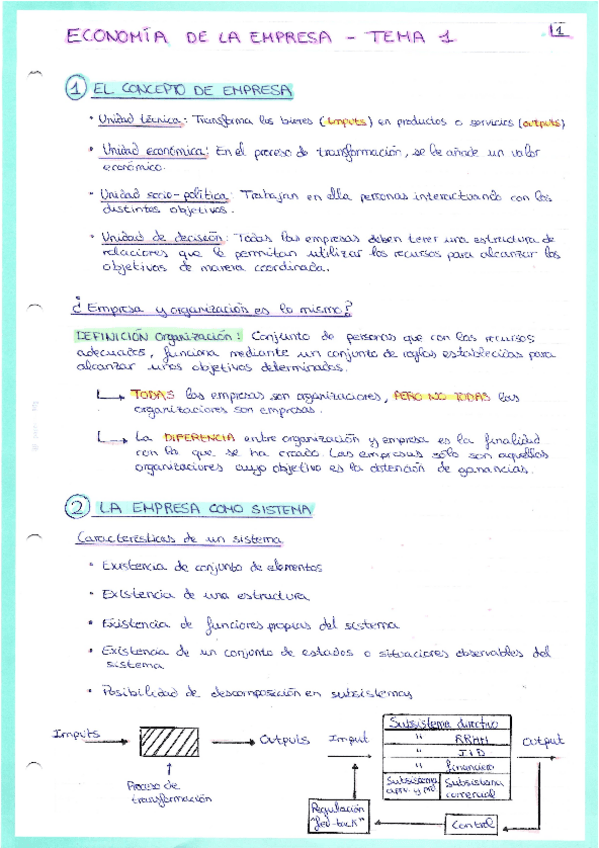 ECONOMÍA DE LA EMPRESA - TEMA 1
1
1 EL CONCEPTO DE EMPRESA
· Unidad técnica: Transforma los bienes (imputs) en productos o servicios (outputs)
· Unidad económica: En el proceso de transformación, se le añade un valor
económico.
· Unidad socio-política: Trabajan en ella personas interactuando con los
distintos objetivos.
· Unidad de decisión: Todas las empresas deben tener una estructura de
relaciones que le permitan utilizar los recursos para alcanzar los
objetivos de manera coordinada.
¿Empresa y organización es lo mismo?
DEFINICIÓN Organización: Conjunto de personas que con los recursos
adecuados, funciona mediante un conjunto de reglas establecidas para
alcanzar unos objetivos determinados.
↳ TODAS las empresas son organizaciones, PERO NO TODAS las
organizaciones son empresas.
↳ La DIFERENCIA entre organización y empresa es la finalidad
con la que se ha creado. Las empresas sólo son aquellas
organizaciones cuyo objetivo es la obtención de ganancias.
2 LA EMPRESA COMO SISTEMA
Características de un sistema
· Existencia de conjunto de elementos
· Existencia de una estructura
· Existencia de funciones propias del sistema
· Existencia de un conjunto de estados o situaciones observables del
sistema
· Posibilidad de descomposición en subsistemas
Imputs
Outputs
Proceso de
transformación
Imput
Subsistema directivo
" RRHH
" I+D
" financiero
Subsistema
aprov. y prod
Subsistema
comercial
Output
Regulación
"feed-back"
Control